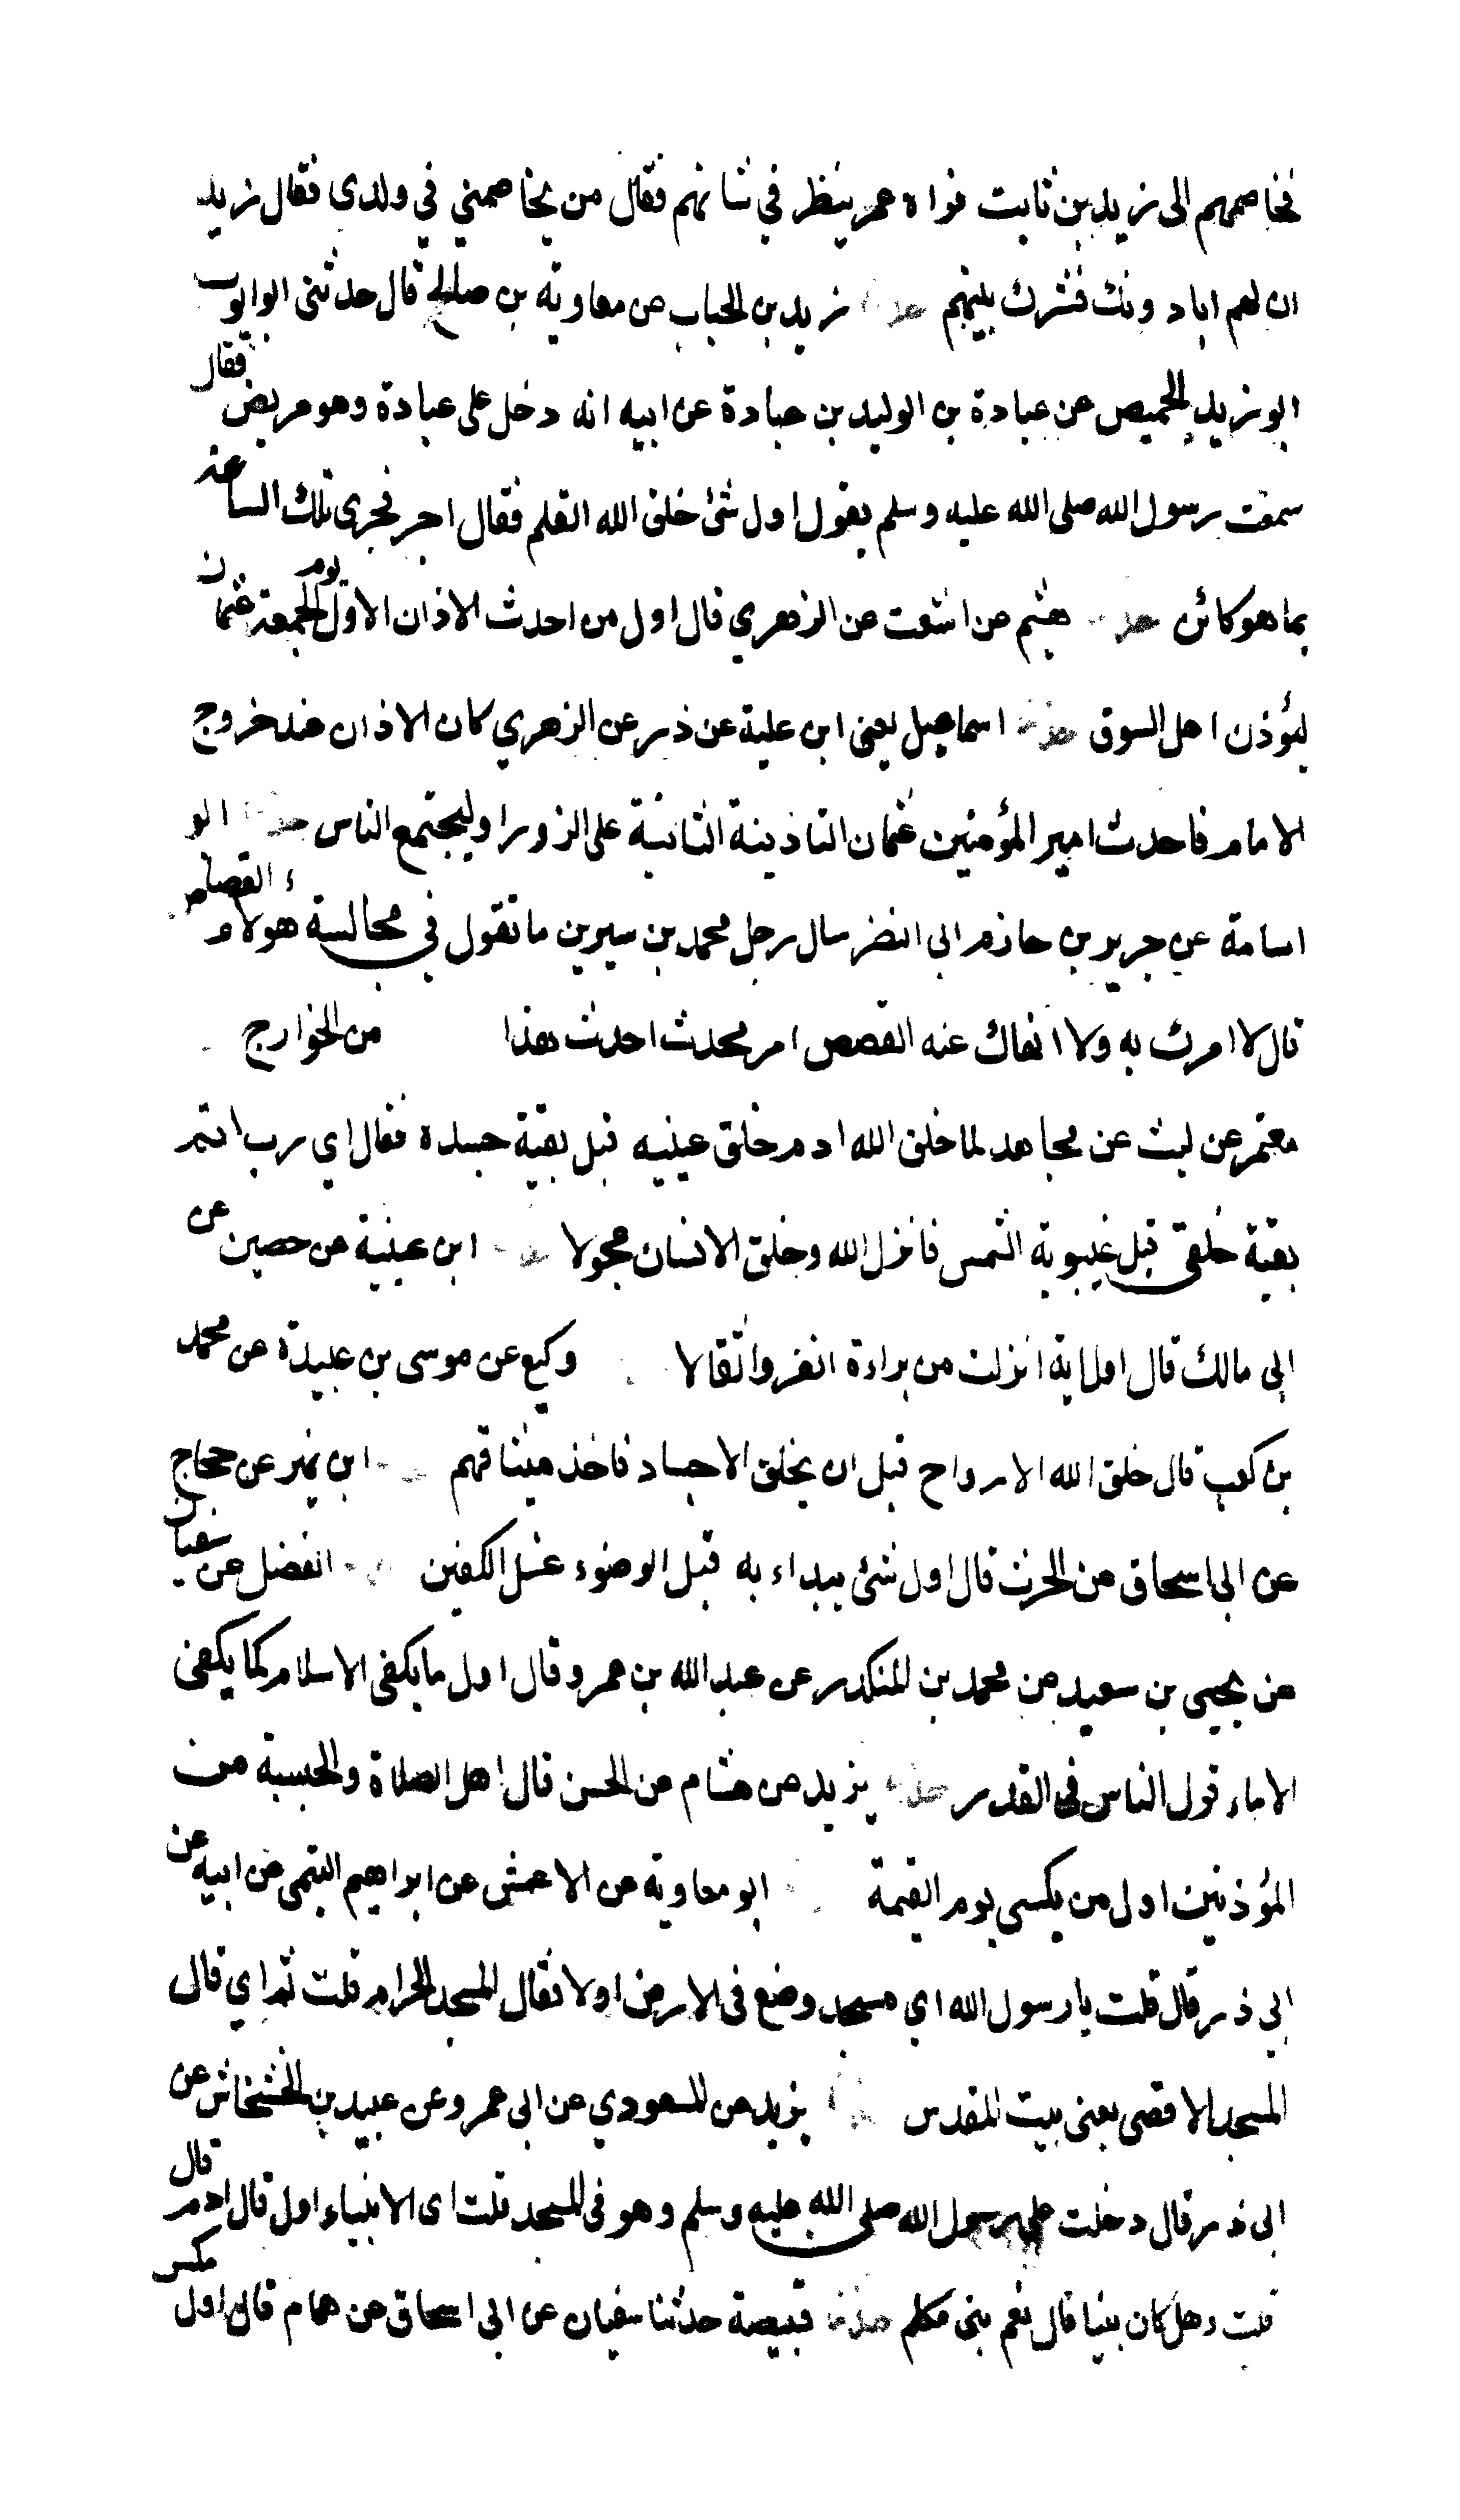 فخاصمهم الى زيد بن ثابت فراه عمر ينظر في شانهم فقال من يخاصمني في ولدى فقال زيد
ان لهم ابا دونك فشرك بينهم حدثنا زيد بن الحباب عن معاوية بن صالح قال حدثنى ابو ايوب
ابو زيد الحميص عن عبادة بن الوليد بن عبادة عن ابيه انه دخل على عبادة وهو مريض فقال
سمعت رسول الله صلى الله عليه وسلم يقول اول شئ خلق الله القلم فقال اجر فجرى تلك الساعة
بما هو كائن حدثنا هشيم عن اشعث عن الزهري قال اول من احدث الاذان الاول يوم الجمعة عثمان
ليؤذن اهل السوق حدثنا اسماعيل يعنى ابن علية عن ذر عن الزهري كان الاذان عند خروج
الامام فاحدث امير المؤمنين عثمان التاذينة الثانية على الزورا وليجتمع الناس حدثنا ابو
اسامة عن جرير بن حازم ابى النضر سال رجل محمد بن سيرين ما تقول في مجالسة هولاء القصاص
قال لا امرك به ولا انهاك عنه القصص امر محدث احدث هذا من الخوارج
معتمر عن ليث عن مجاهد لما خلق الله ادم خلق عينيه قبل بقية جسده فقال اي رب اتم
بقية خلقى قبل غيبوبة الشمس فانزل الله وخلق الانسان عجولا حدثنا ابن عيينة عن حصين عن
ابى مالك قال اول اية انزلت من براءة انفروا ثقالا وكيع عن موسى بن عبيدة عن محمد
بن كعب قال خلق الله الارواح قبل ان يخلق الاجساد فاخذ ميثاقهم ابن نمير عن حجاج
عن ابى اسحاق عن الحرث قال اول شئ يبداء به قبل الوضوء غسل الكفين الفضل عن
عن يحيى بن سعيد عن محمد بن المنكدر عن عبد الله بن عمرو قال اول ما يكفى الاسلام كما يكفى
الاناء قول الناس فى القدر حدثنا يزيد عن هشام عن الحسن قال اهل الصلاة والحسبة من
المؤذنين اول من يكسى يوم القيمة ابو معاوية عن الاعمش عن ابراهيم التيمى عن ابيه عن
ابى ذر قال قلت يا رسول الله اي مسجد وضع فى الارض اولا فقال المسجد الحرام قلت ثم اي قال
المسجد الاقصى يعنى بيت المقدس يزيد عن المسعودي عن ابى عمرو عن عبيد بن الخشخاش عن
ابى ذر قال دخلت على رسول الله صلى الله عليه وسلم وهو فى المسجد قلت اى الانبياء اول قال ادم قال
قلت وهل كان نبيا قال نعم نبى مكلم حدثنا قبيصة حدثنا سفيان عن ابى اسحاق عن همام قال اول